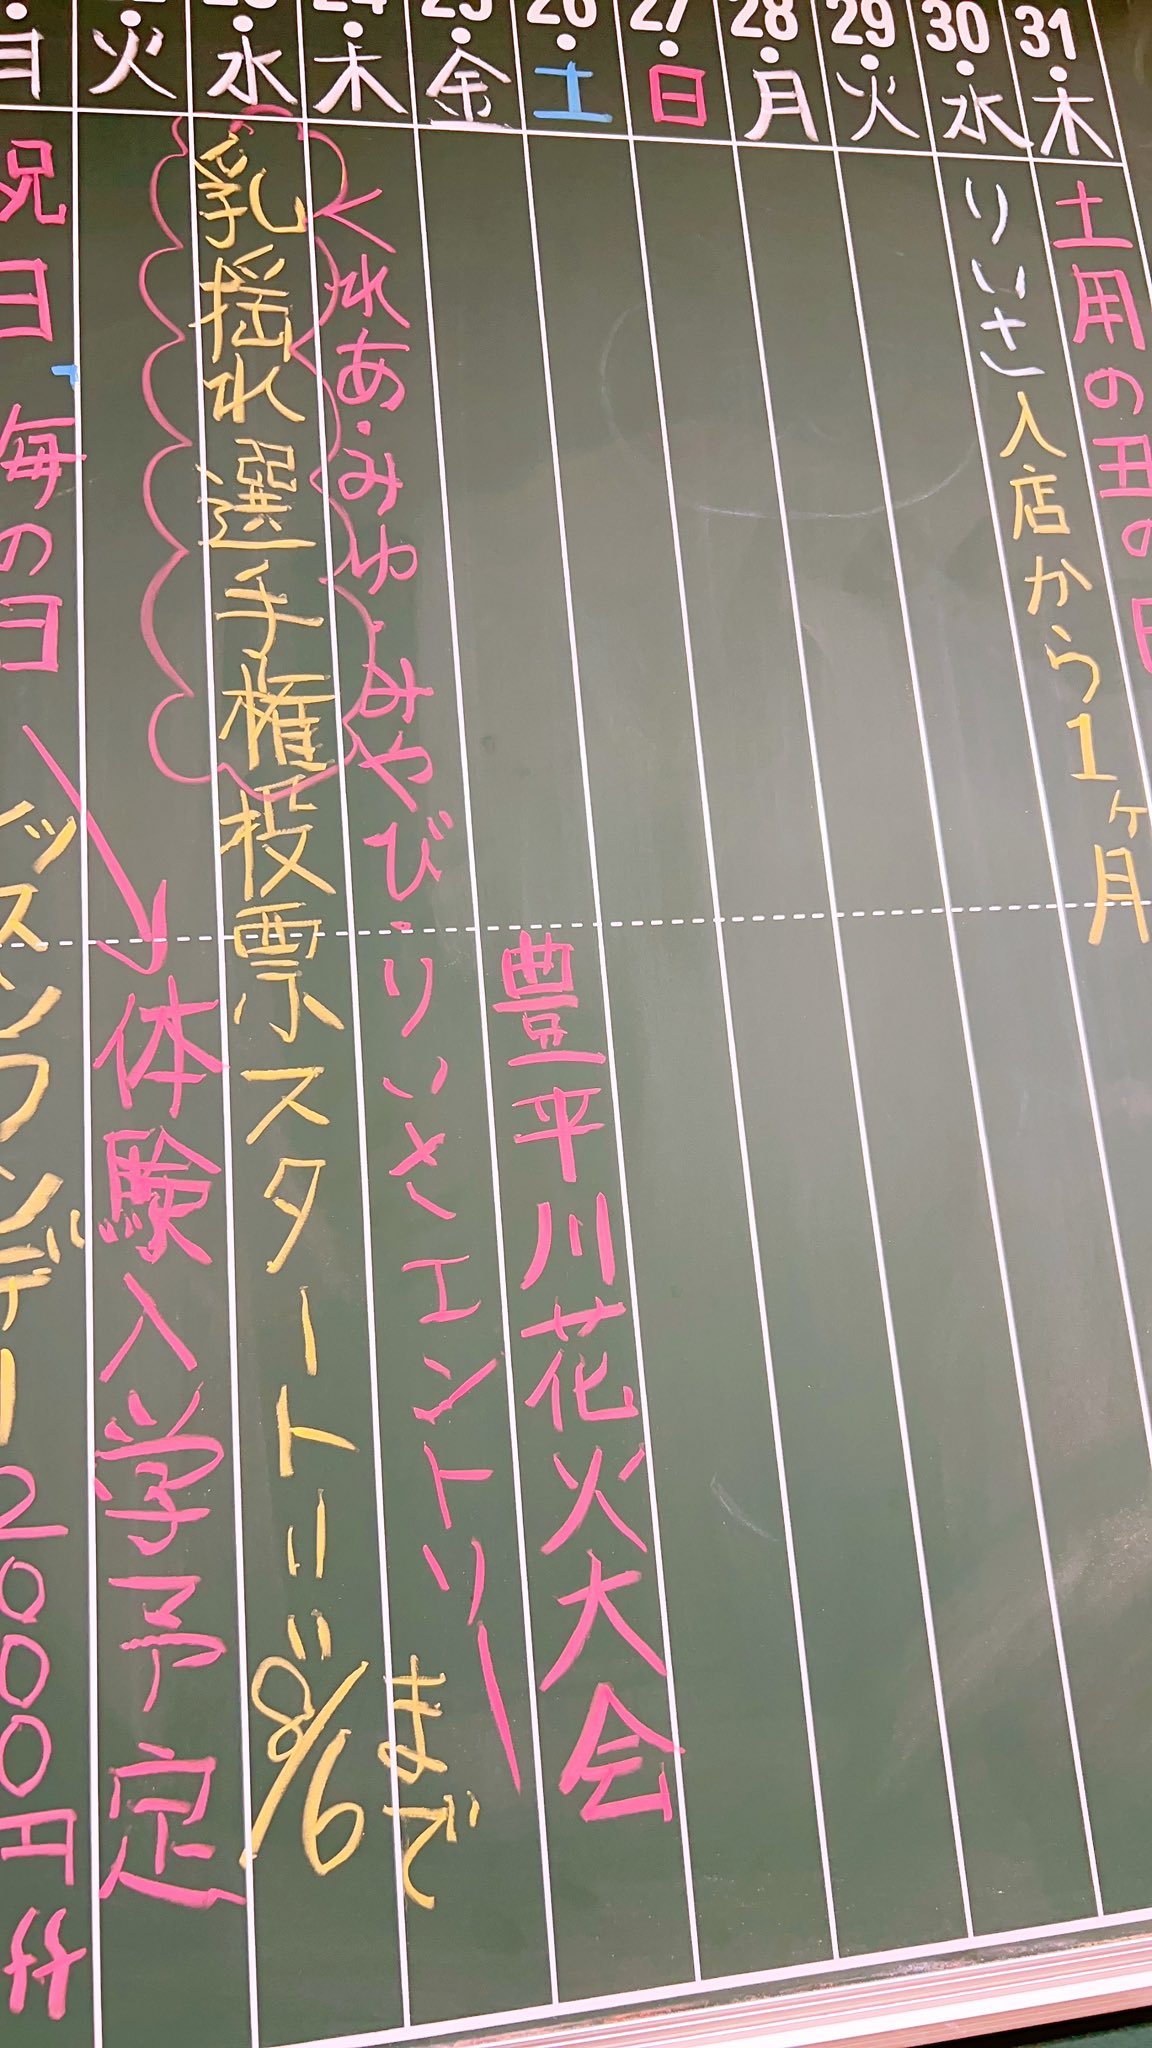 月
火
水
24・木
25・金
26・土
27・日
28・月
29・火
30・水
31・木
祝日 海の日
ッスンワンデー2000円
体験入学予定
乳揺れ選手権投票スタート!! 8/6まで
れあ・みゆ・みやび・りいさエントリー
豊平川花火大会
りいさ入店から1ヶ月
土用の丑の日